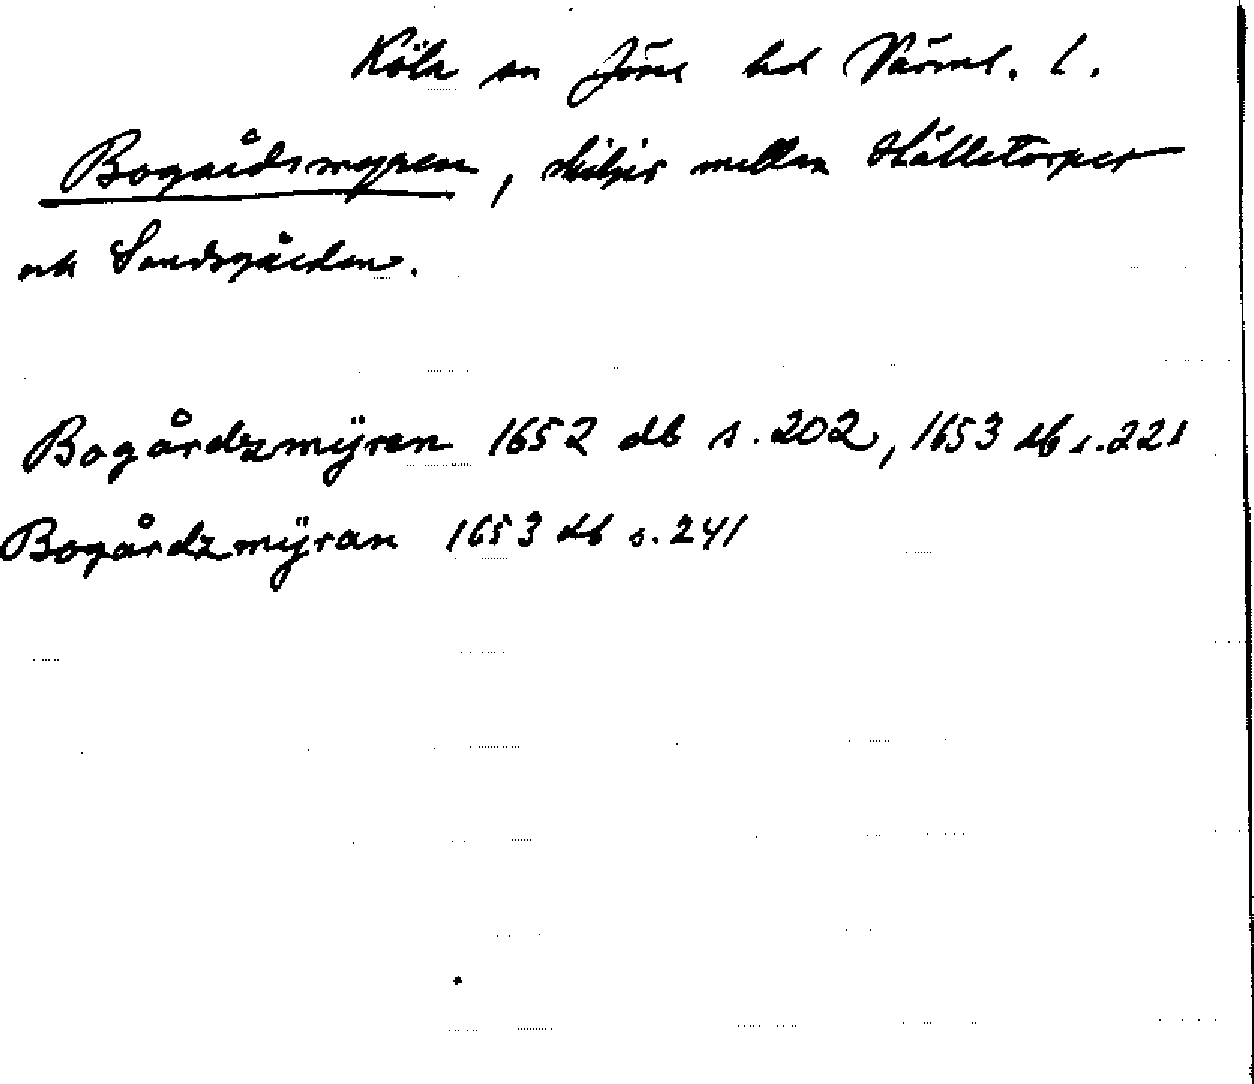 Köla sn Jösse hd Värml. l.
Bogårdsmyren, skiljer mellan Hälletorpet
och Sandsgården.
Bogårdzmÿren 1652 db s. 202, 1653 db s. 221
Bogårdzmÿran 1653 db s. 241